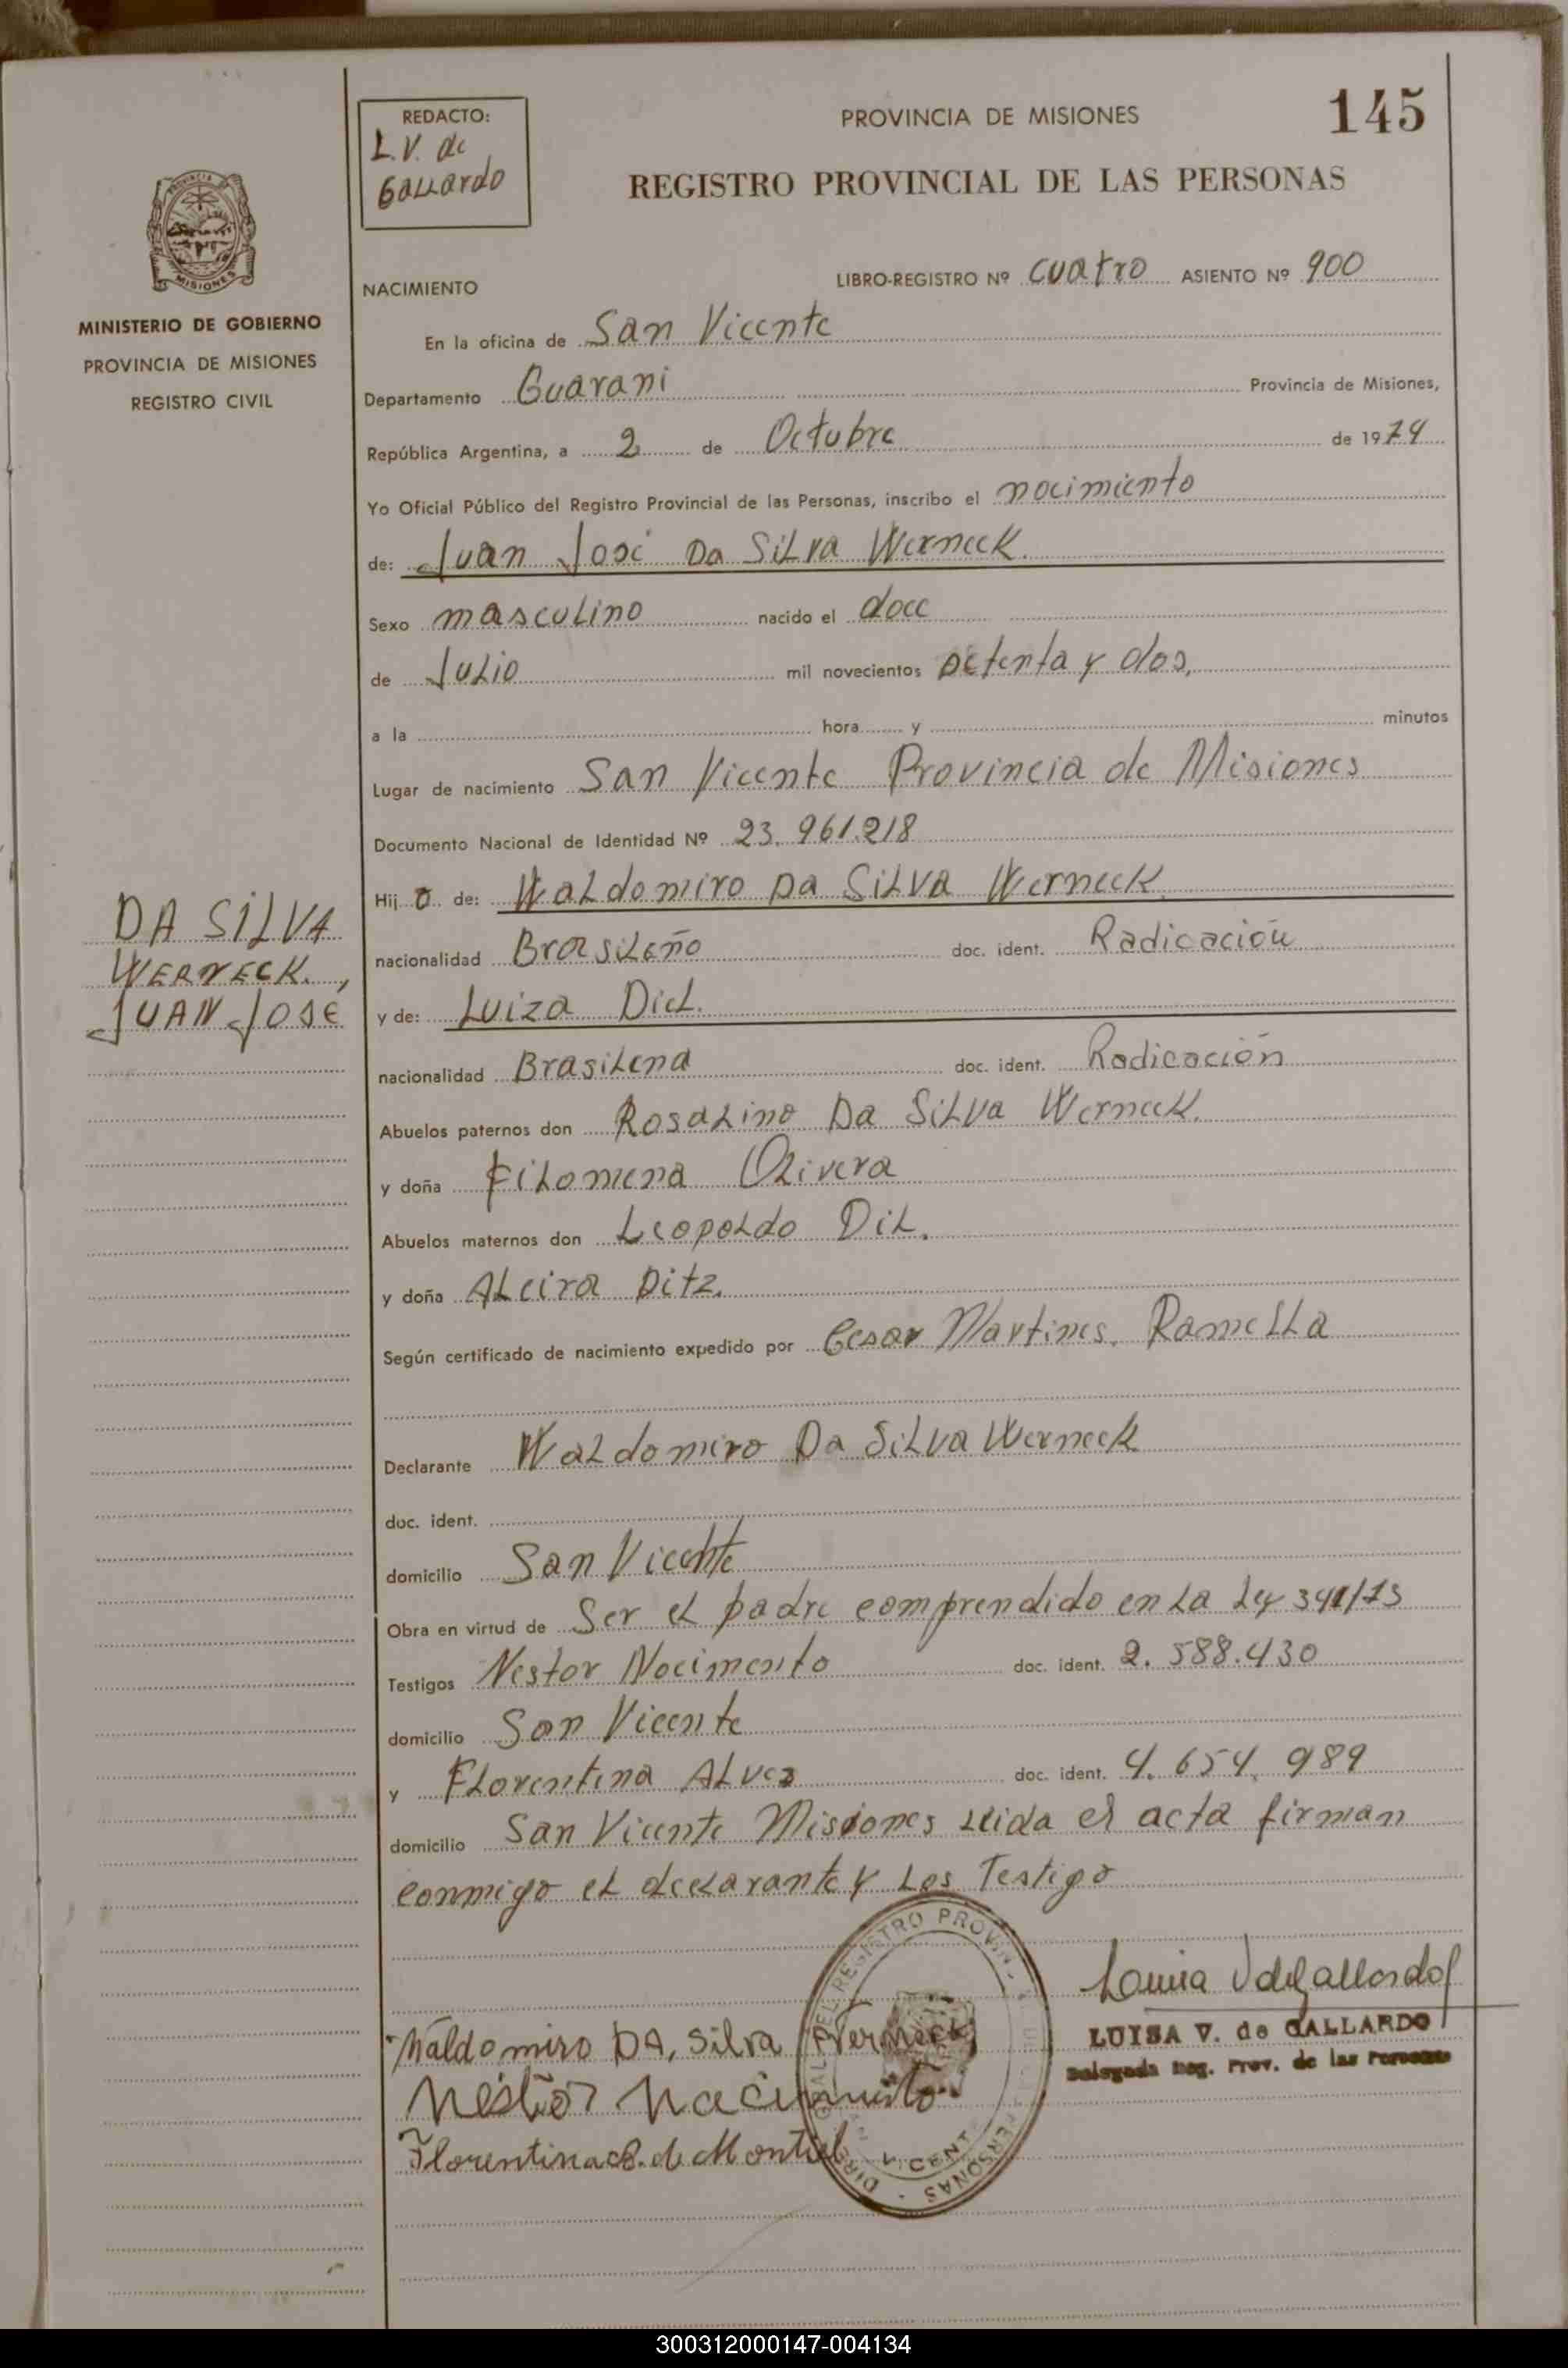 REDACTO:
L.V. de
Gallardo
PROVINCIA DE MISIONES
145
REGISTRO PROVINCIAL DE LAS PERSONAS
PROVINCIA
MISIONES
MINISTERIO DE GOBIERNO
PROVINCIA DE MISIONES
REGISTRO CIVIL
NACIMIENTO
LIBRO-REGISTRO Nº cuatro ASIENTO Nº 900
En la oficina de San Vicente
Departamento Guarani Provincia de Misiones,
República Argentina, a 2 de Octubre de 1974
Yo Oficial Público del Registro Provincial de las Personas, inscribo el nacimiento
de: Juan José Da Silva Werneck.
Sexo masculino nacido el doce
de Julio mil novecientos setenta y dos,
a la hora y minutos
Lugar de nacimiento San Vicente Provincia de Misiones
Documento Nacional de Identidad Nº 23.961.218
Hijo de: Waldomiro Da Silva Werneck
nacionalidad Brasileño doc. ident. Radicación
y de: Luiza Diel.
nacionalidad Brasilena doc. ident. Radicación
Abuelos paternos don Rosalino Da Silva Werneck.
y doña Filomena Olivera
Abuelos maternos don Leopoldo Dil.
y doña Alcira Ditz.
Según certificado de nacimiento expedido por Cesar Martines. Ramella
Declarante Waldomiro Da Silva Werneck
doc. ident.
domicilio San Vicente
Obra en virtud de Ser el padre comprendido en la Ley 341/73
Testigos Nestor Nocimento doc. ident. 2.588.430
domicilio San Vicente
y Florentina Alvez doc. ident. 4.654.989
domicilio San Vicente Misiones leida el acta firman
conmigo el declarante y Los Testigo
DA SILVA
WERNECK.,
JUAN JOSÉ
Waldomiro DA, Silva Werneck
Néstor Nacimento
Florentina A. de Montiel
Louisa V de Gallardo
LUISA V. de GALLARDO
Delegada Reg. Prov. de las Personas
300312000147-004134